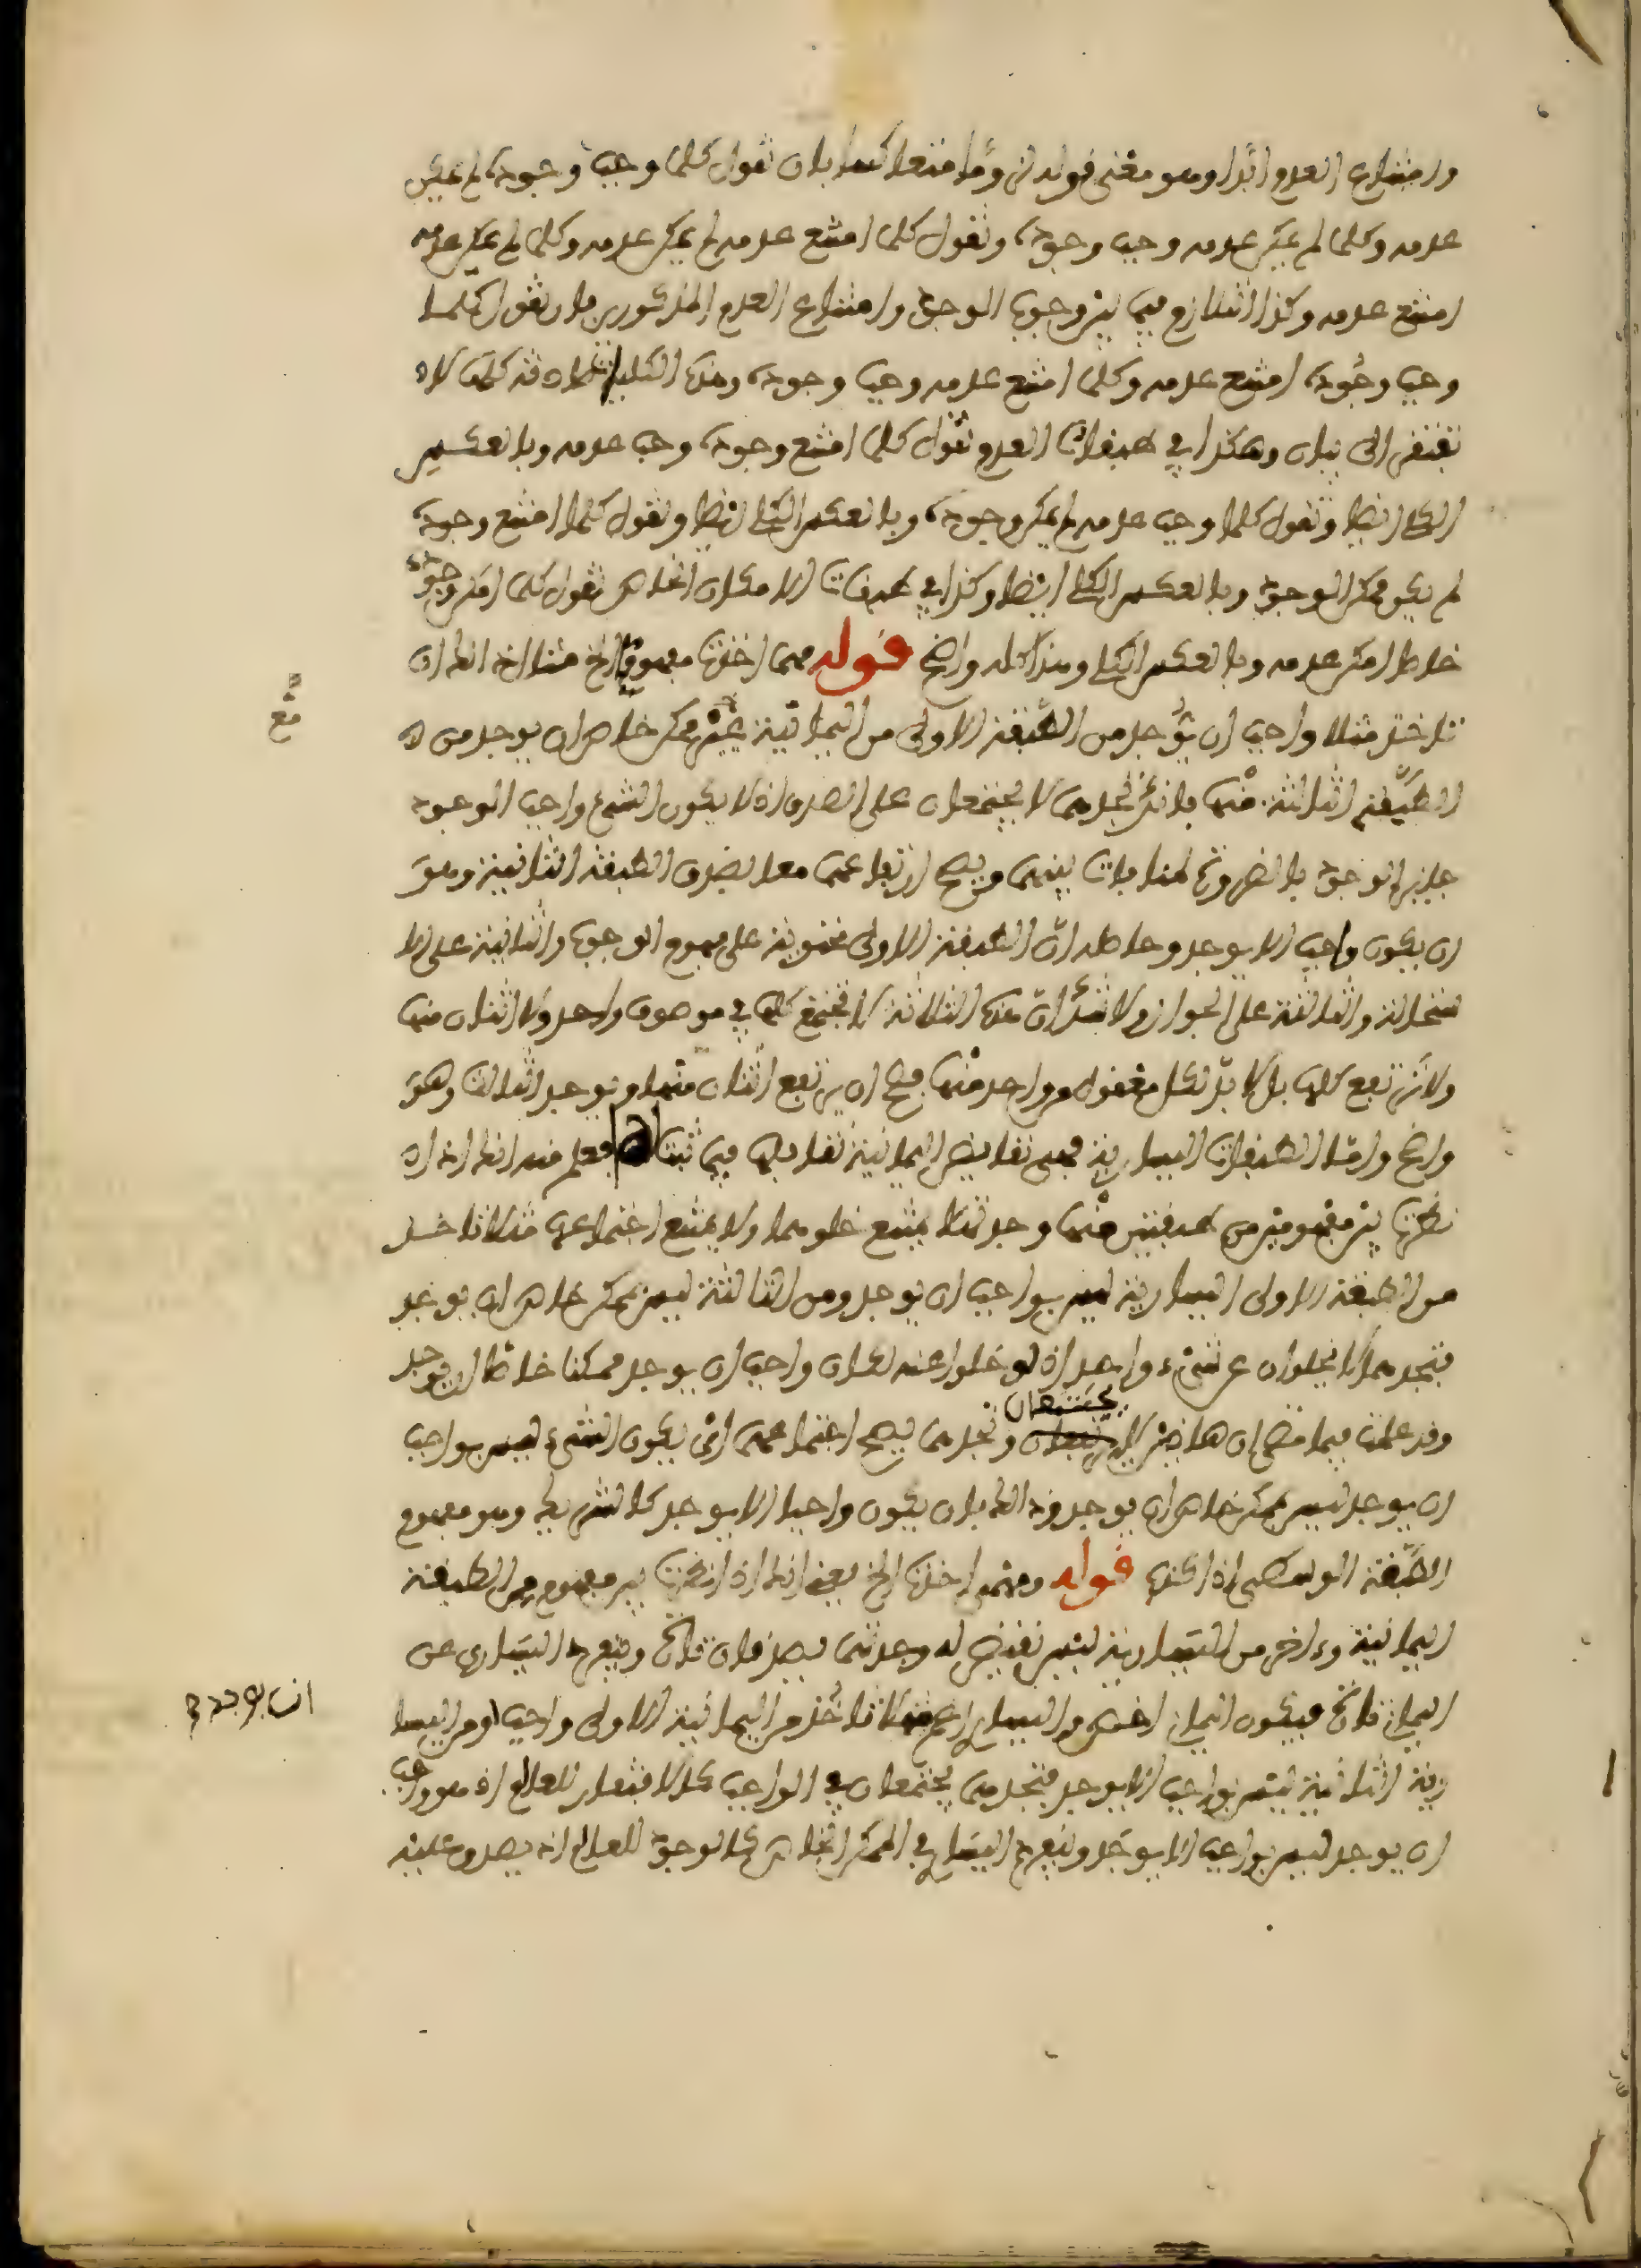 وامتناع العدم ابدا وهو معنى قوله لزوما منعكسا بان تقول كلما وجب وجوده لم يمكن
عدمه وكلما لم يمكن عدمه وجب وجوده وتقول كلما امتنع عدمه لم يمكن عدمه وكلما لم يمكن عدمه
امتنع عدمه وكذا التلازم فيما بين وجوب الوجود وامتناع العدم المذكورين بان تقول كلما
وجب وجوده امتنع عدمه وكلما امتنع عدمه وجب وجوده وهذه الكليات صادقة كلها لا
تفتقر الى بيان وهكذا في طبقات العدم تقول كلما امتنع وجوده وجب عدمه وبالعكس
الكلي ايضا وتقول كلما وجب عدمه لم يمكن وجوده وبالعكس الكلي ايضا وتقول كلما امتنع وجوده
لم يكن ممكن الوجود وبالعكس الكلي ايضا وكذا في طبقات الامكان الخاص تقول كلما امكن وجوده
خاصا امكن عدمه وبالعكس الكلي وهذا كله واضح قوله مهما اخذت مفهوما الخ هذا انك ان
تاخذ مثلا واجب ان يوجد من الطبقة الاولى من اليمانية ممكن خاص ان يوجد من
الطبقة الثالثة منها فانك تجدهما لا يجتمعان على الصدق اذ لا يكون الشيء واجب الوجود
جايز الوجود بالضرورة لمنافات بينهما ويصح ارتفاعهما معا بصدق الطبقة الثانية وهو
ان يكون واجب الا يوجد وحاصله ان الطبقة الاولى محتوية على مفهوم الوجوب والثانية على الا
ستحالة والثالثة على الجواز ولا شك ان هذه الثلاثة لا تجتمع كلها في موصوف واحد ولا اثنان منها
ولا ترتفع كلها بل لا بد لكل معقول من واحد منها فيصح ان يرتفع اثنان منها ويوجد الثالث وهو
واضح واما الطبقات اليسارية فهي نقايض اليمانية تقابلها فيما ثبت فعلم منه انك اذا
نظرت بين مفهومين من طبقتين منها وجدتهما يمتنع خلوهما ولا يمتنع اجتماعهما مثلا تاخذ
من الطبقة الاولى اليسارية ليس بواجب ان يوجد ومن الثالثة ليس بممكن خاص ان يوجد
فتجدهما لا يخلوان عن شيء واحد اذ لو خلوا عنه لكان واجب ان يوجد ممكنا خاصا ان يوجد
وقد علمت فيما مضى ان هاذين لا يجتمعان وتجدهما يصح اجتماعهما اي يكون الشيء ليس بواجب
ان يوجد ليس بممكن خاص ان يوجد وذلك بان يكون واجبا الا يوجد كالشريك وهو مفهوم
الطبقة الوسطى اذا اخذها قوله ومتى اخذت الخ يعني انك اذا نظرت بين مفهوم من الطبقة
اليمانية وءاخر من اليسارية ليس نقيض له وجدتهما يصدقان تارة وينفرد اليساري عن
اليماني تارة فيكون اليماني اخص واليساري اعم مثلا تاخذ من اليمانية الاولى واجب ومن اليسا
ان يوجد صح
رية الثانية ليس بواجب الا يوجد فتجدهما يجتمعان في الواجب كالافتقار للعالم اذ هو واجب
ان يوجد ليس بواجب الا يوجد وينفرد اليساري في الممكن الخاص كالوجود للعالم اذ يصدق عليه